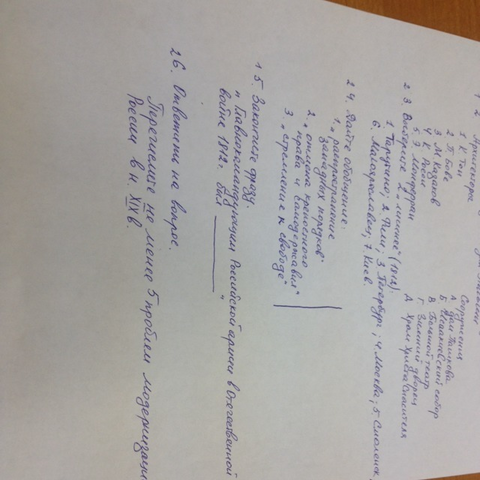 2 Архитекторы
Сооружения
1 К. Тон
А Дом Пашкова
2 П. Бове
Б Исаакиевский собор
3 М. Казаков
В Большой театр
4 К. Росси
Г Зимний дворец
5 О. Монферран
Д Храм Христа Спасителя
2 3. Выберите 2 „лишнее" (1812г):
1 Тарутино; 2 Фили; 3 Петербург; 4 Москва; 5 Смоленск;
6. Малоярославец; 7 Киев.
2 4. Дайте обобщение:
1 „распространение
западных порядков"
2 „отмена крепостного
права и самодержавия"
3 „стремление к свободе"
1 5. Закончите фразу:
„Главнокомандующим Российской армии в Отечественной
войне 1812г. был ______ "
2 6. Ответьте на вопрос.
Перечислите не менее 5 проблем модернизации
России в н. XIX в.